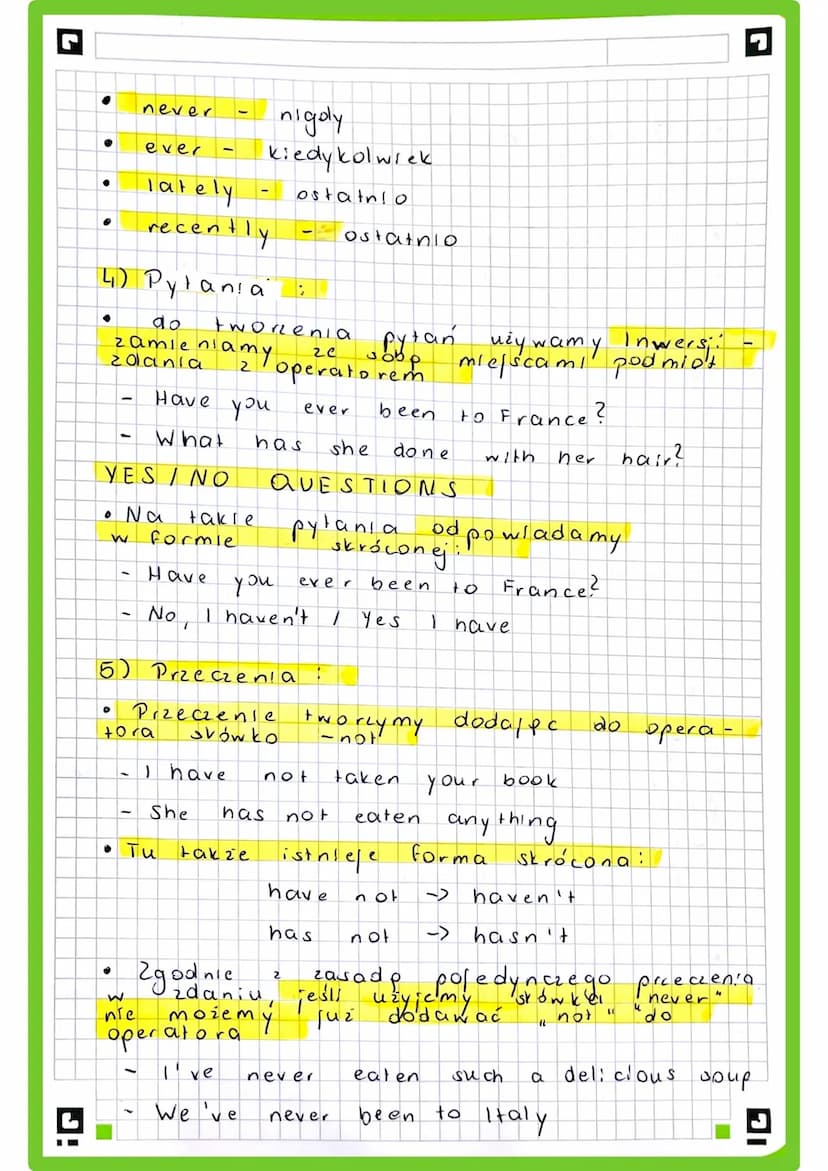 • never - nigdy
• ever - kiedykolwiek
• lately - ostatnio
• recently - ostatnio
4) Pytania :
• do tworzenia pytań używamy Inwersji -
zamieniamy ze sobą miejscami podmiot
zdania z operatorem
- Have you ever been to France?
- What has she done with her hair?
YES / NO QUESTIONS
• Na takie pytania odpowiadamy
w formie skróconej:
- Have you ever been to France?
- No, I haven't / Yes I have
5) Przeczenia :
• Przeczenie tworzymy dodając do opera-
tora słówko -not
- I have not taken your book
- She has not eaten anything
• Tu także istnieje forma skrócona:
have not -> haven't
has not -> hasn't
• Zgodnie z zasadą pojedynczego przeczenia
w zdaniu, jeśli użyjemy słówka "never"
nie możemy już dodawać „not" do
operatora
- I've never eaten such a delicious soup
- We've never been to Italy